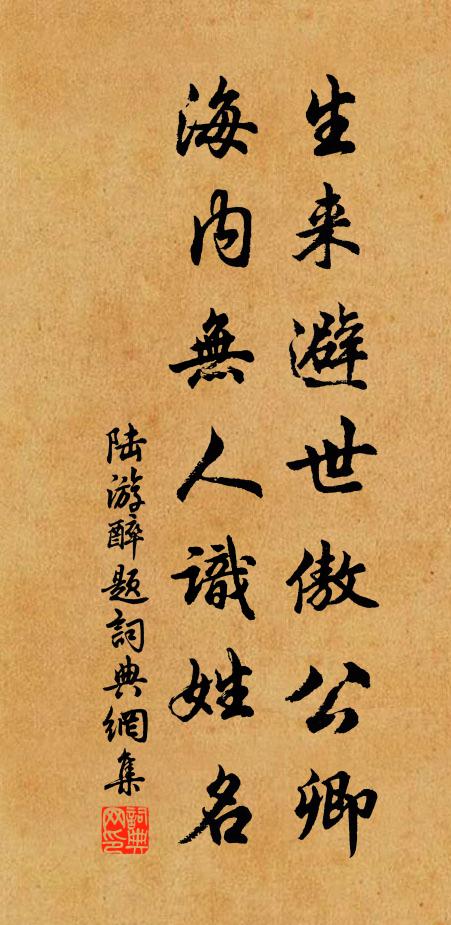 生来避世傲公卿
海内無人識姓名
陆游醉题詞典網集
詞典網印